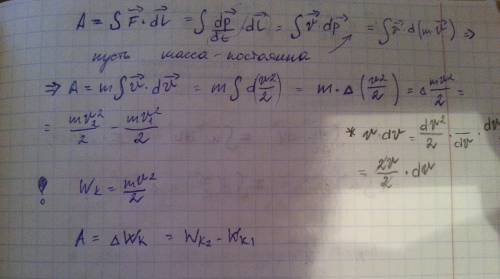 A = ∫ F⃗ · dl⃗ = ∫ dp⃗/dt · dl⃗ = ∫ v⃗ · dp⃗ = ∫ v⃗ · d(mv⃗) ⇒
пусть масса - постоянна
⇒ A = m ∫ v⃗ · dv⃗ = m ∫ d(v²/2) = m · Δ(v²/2) = Δ mv²/2 =
= mv₂²/2 - mv₁²/2
* v · dv = dv²/2 · /dv · dv
= 2v/2 · dv
! Wk = mv²/2
A = ΔWk = Wk2 - Wk1